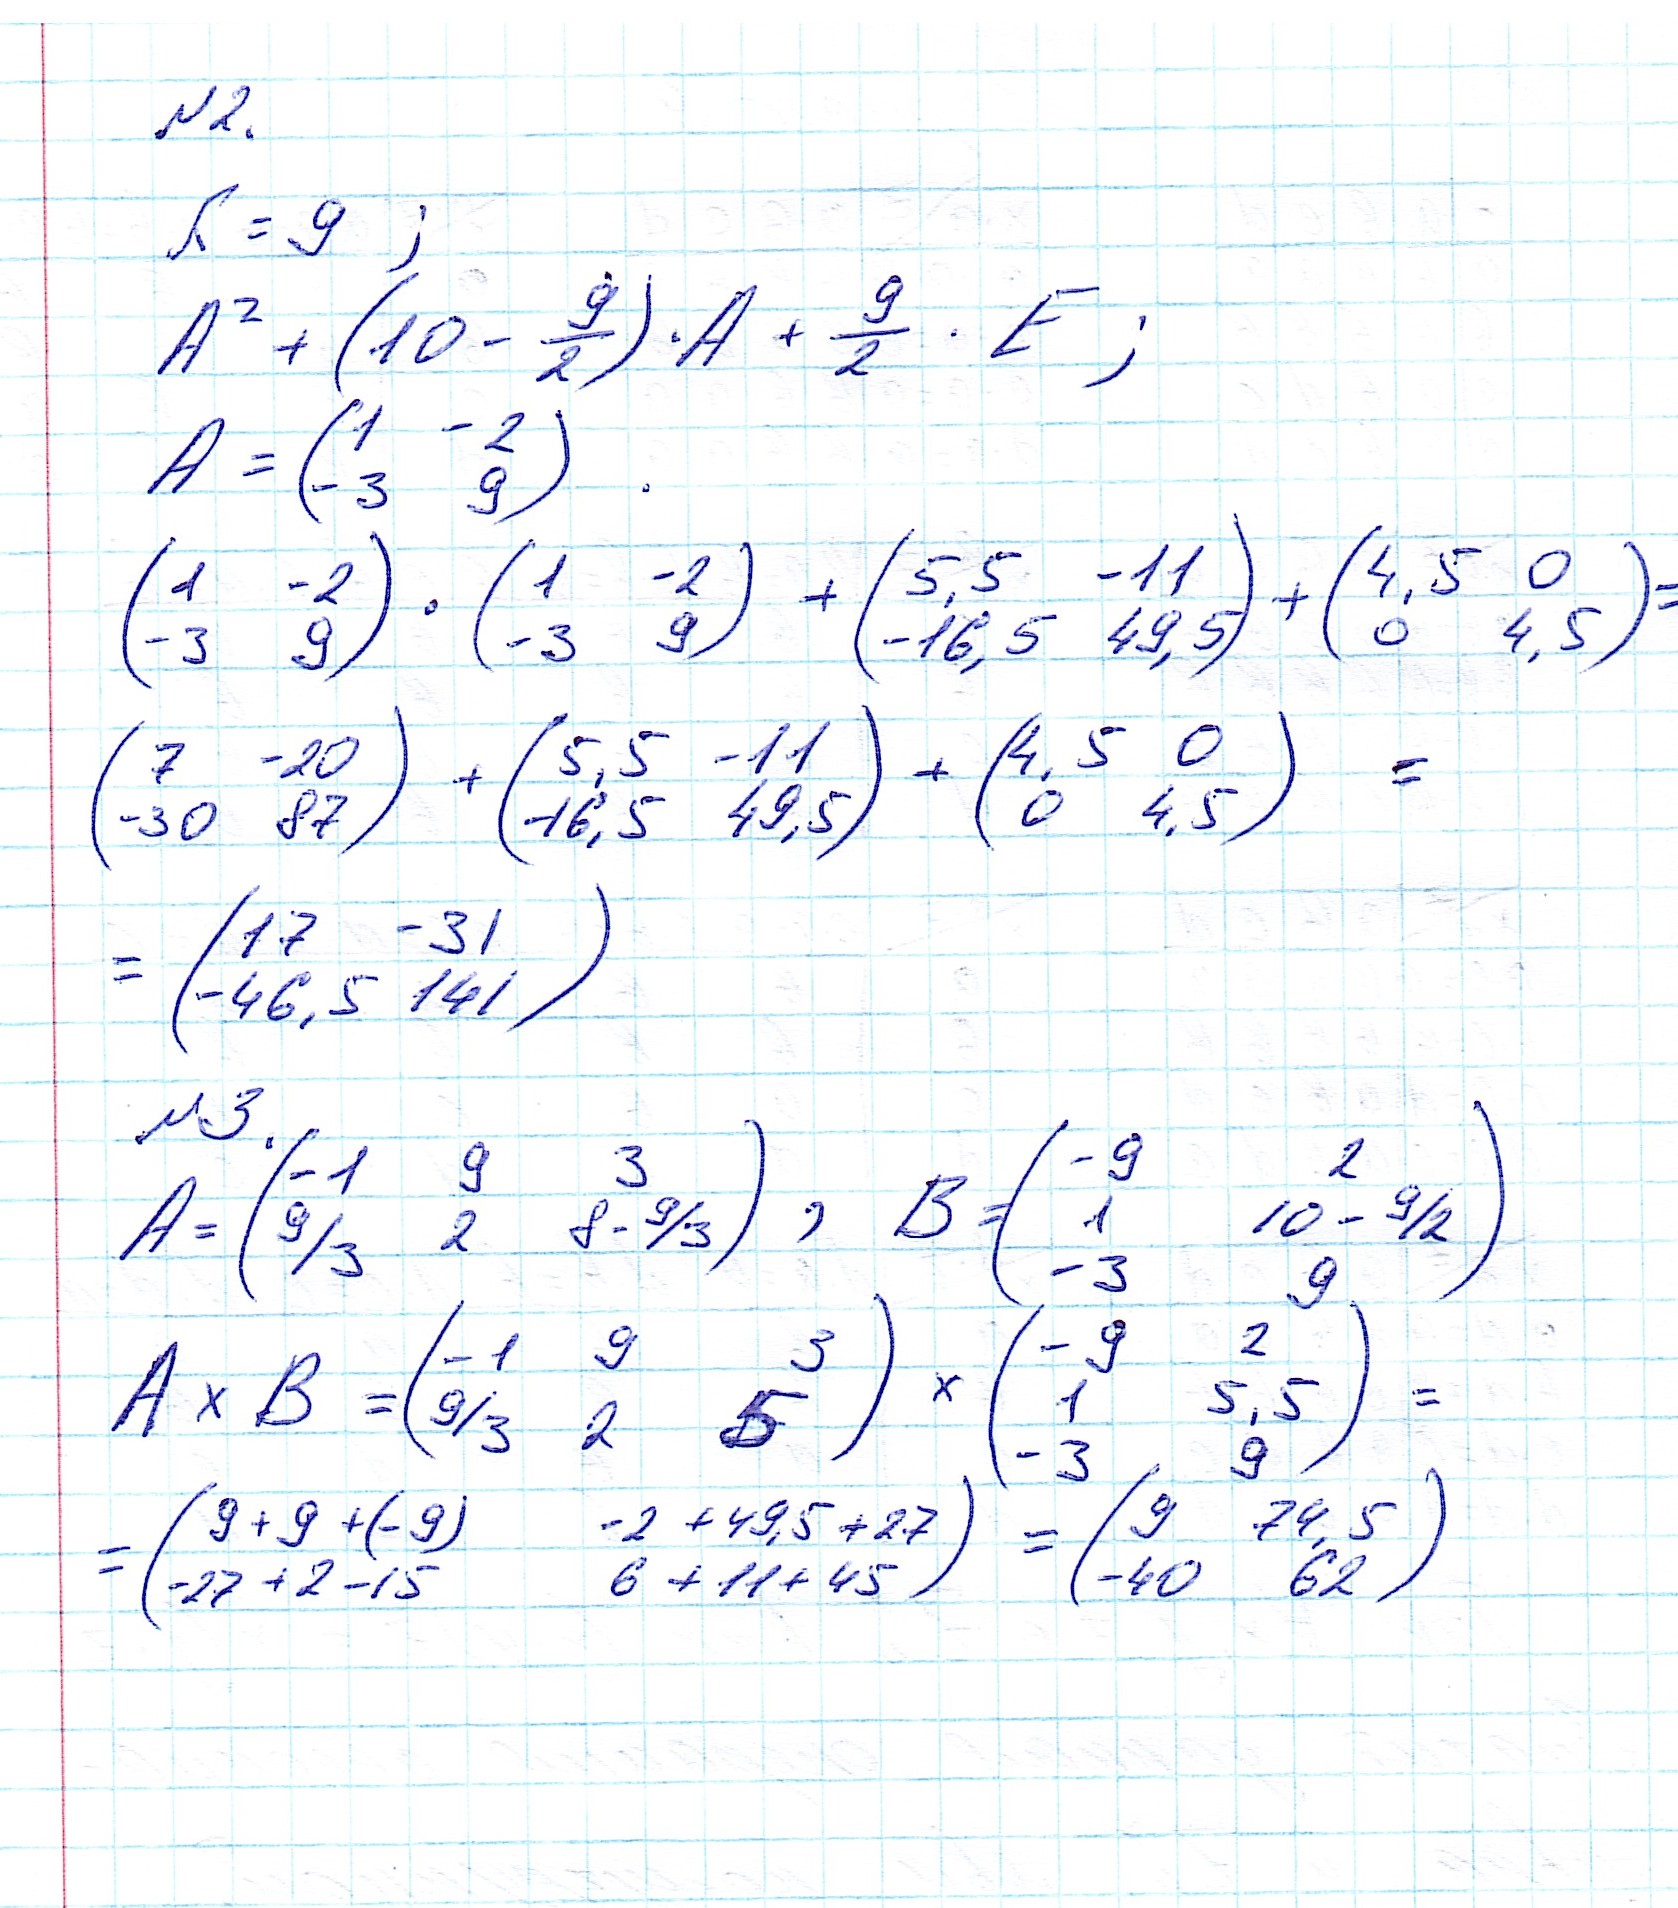 №2.
K = 9 ;
A² + (10 - 9/2) · A + 9/2 · E ;
A = (1 -2
-3 9) .
(1 -2
-3 9) · (1 -2
-3 9) + (5,5 -11
-16,5 49,5) + (4,5 0
0 4,5) =
(7 -20
-30 87) + (5,5 -11
-16,5 49,5) + (4,5 0
0 4,5) =
= (17 -31
-46,5 141)
№3.
A = (-1 9 3
9/3 2 8-9/3) , B = (-9 2
1 10-9/2
-3 9)
A × B = (-1 9 3
9/3 2 5) × (-9 2
1 5,5
-3 9) =
= (9+9+(-9) -2+49,5+27
-27+2-15 6+11+45) = (9 74,5
-40 62)